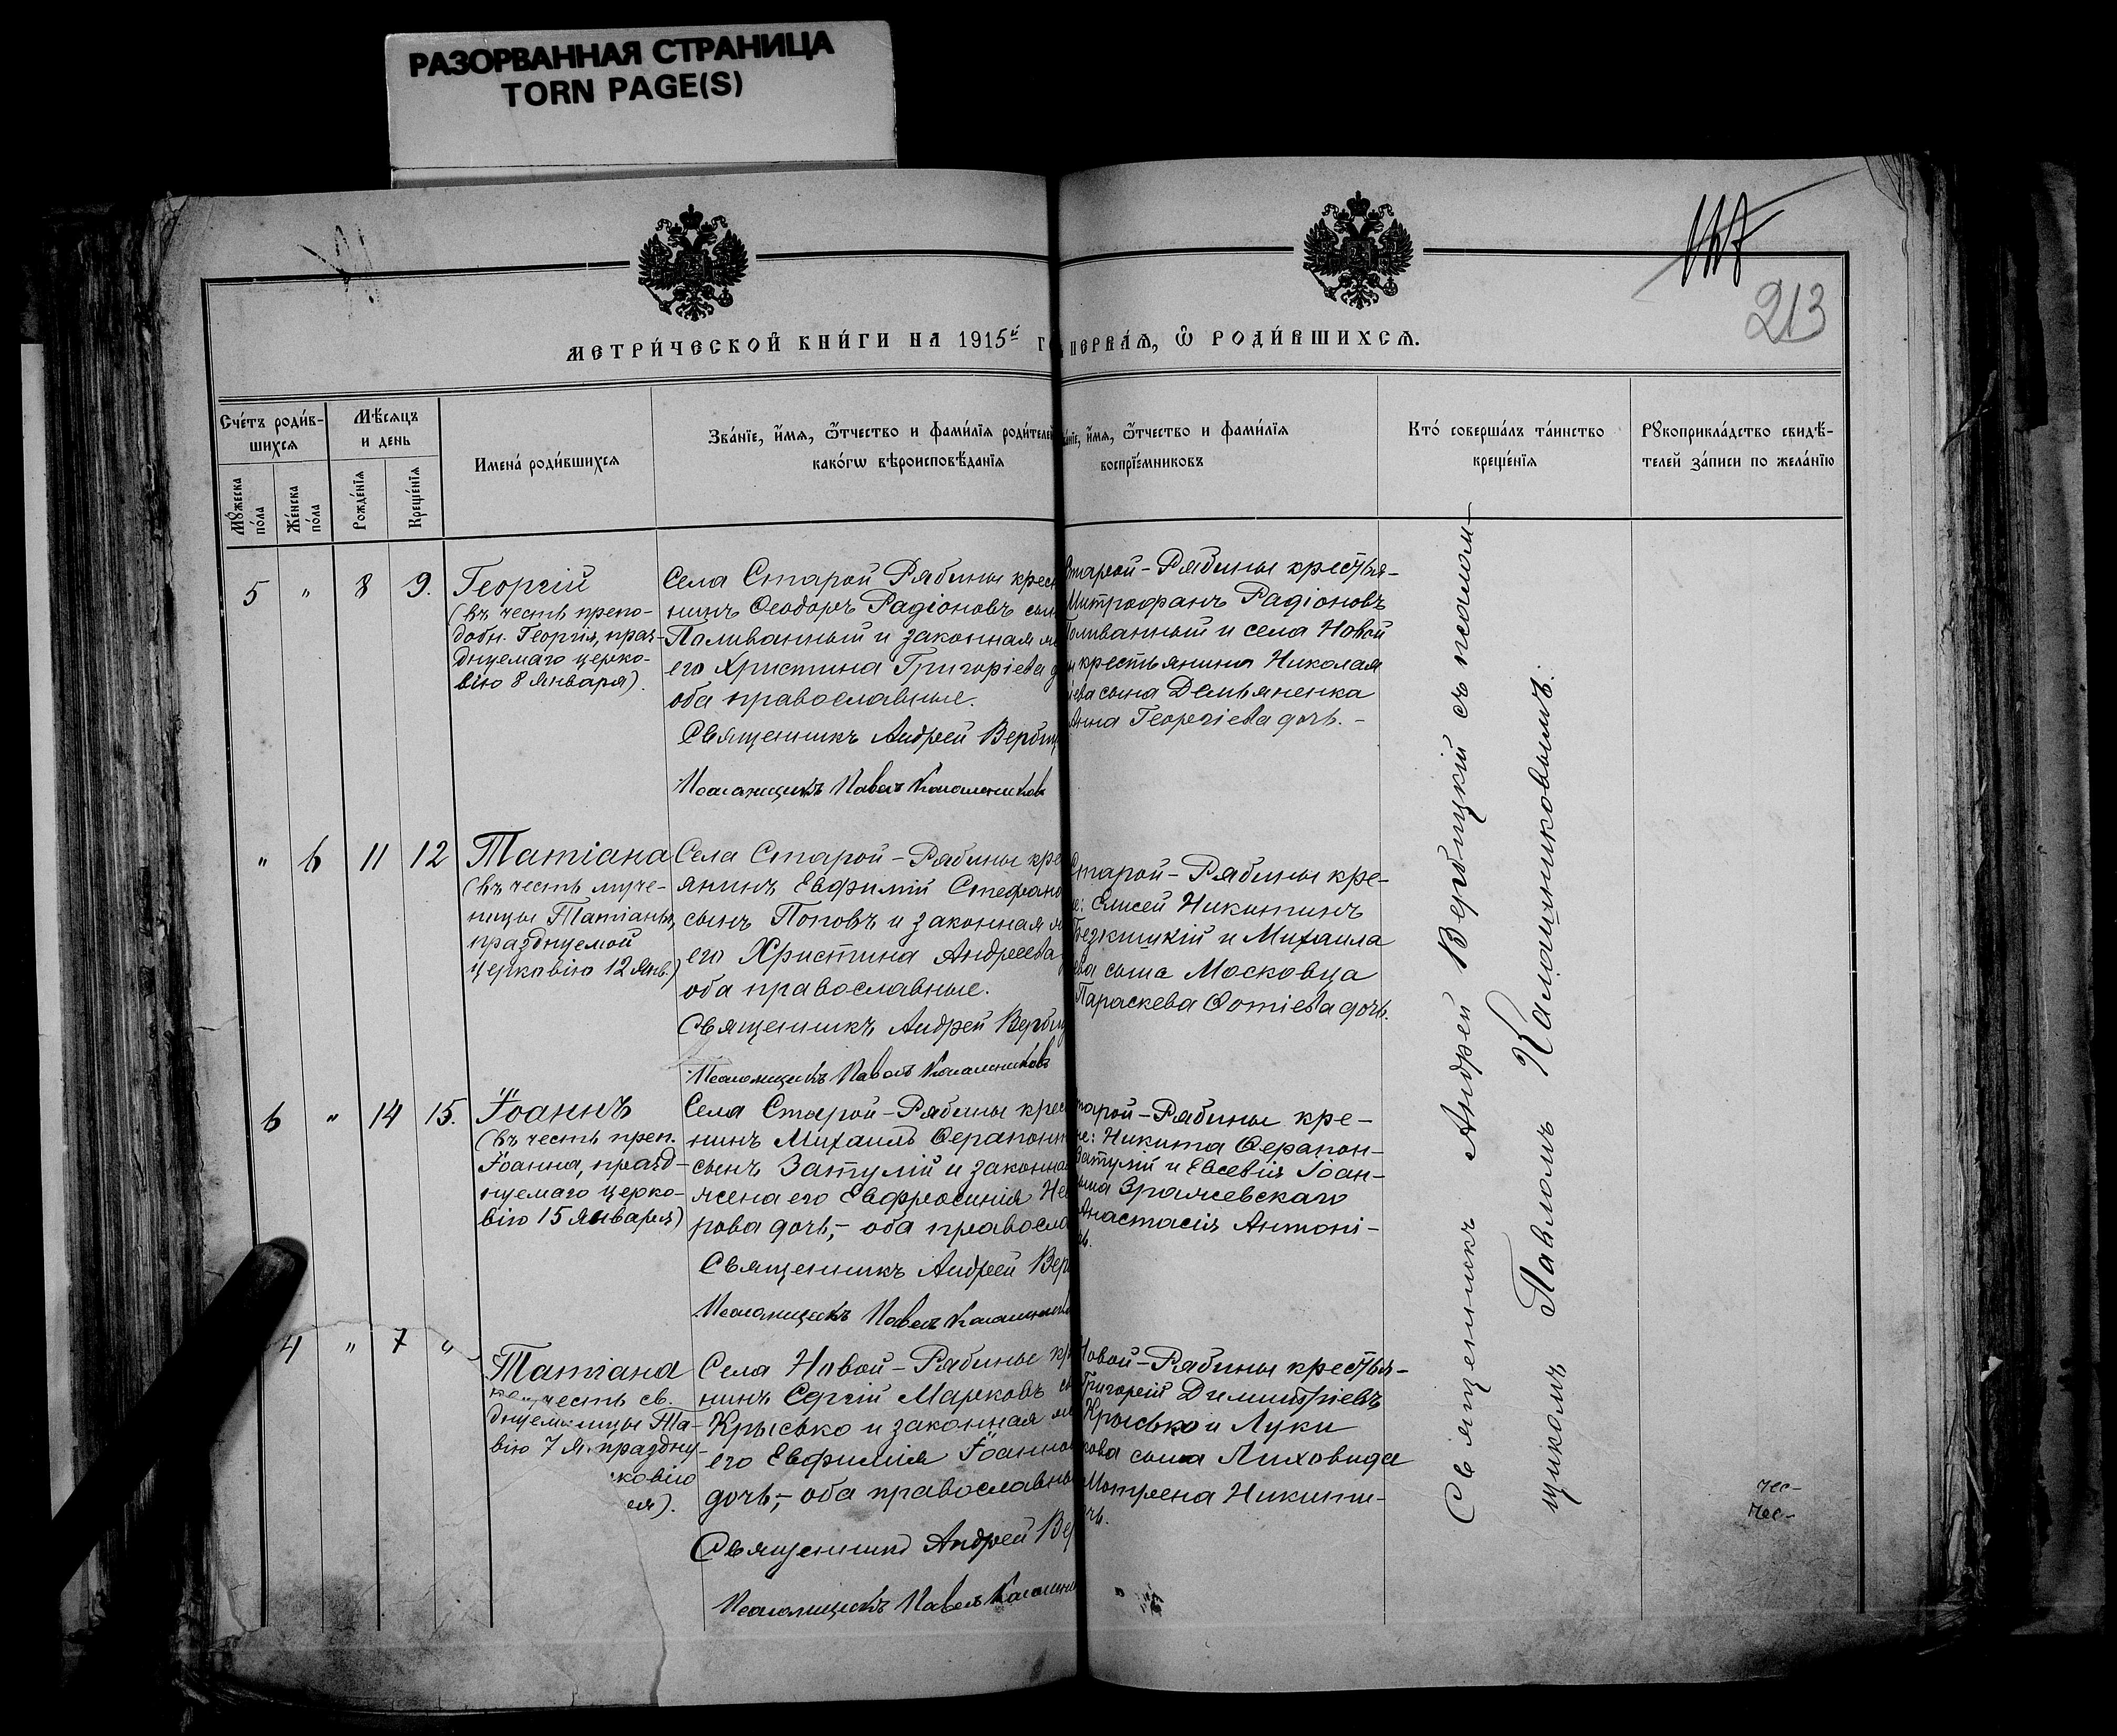 РАЗОРВАННАЯ СТРАНИЦА
TORN PAGE(S)
213
МЕТРИ́ЧЕСКОЙ КНИ́ГИ НА 1915й
ПЕРВАЯ, Ѡ҆ РОДИ́ВШИХСѦ.
Сче́тъ роди́в-
шихсѧ
Мѣ́сѧцъ
и день
Мꙋ́жеска
по́ла
Же́нска
по́ла
Рожде́нїѧ
Креще́нїѧ
Имена́ роди́вшихсѧ
Зва́нїе, и҆́мѧ, ѻ҆́тчество и фами́лїѧ роди́телей
како́гѡ вѣроисповѣ́данїѧ
и҆́мѧ, ѻ҆́тчество и фами́лїѧ
воспрїе́мниковъ
Кто̀ соверша́лъ та́инство
креще́нїѧ
Рꙋкоприкла́дство свидѣ́-
телей за́писи по жела́нїю
5 " 8 9.
Георгій
(въ честь препо-
добн. Георгія, праз-
днуемаго церко-
вію 8 января).
Села Старой Рябины крест
нинъ Ѳеодоръ Радіоновъ сы
Поливанный и законная
его Христина Григоріева
оба православные.
Священникъ Андрей Верби
Псаломщикъ Павелъ Калашников
Старой-Рябины крестья-
Митрофанъ Радіоновъ
Поливанный и села Новой
крестьянина Николая
сына Демьяненка
Анна Георгіева дочь. -
" 6 11 12
Татіана
(въ честь муче-
ницы Татіаны,
празднуемой
церковію 12 янв.)
Села Старой-Рябины кре
янинъ Евфимій Стефано
сынъ Поповъ и законная
его Христина Андреева
оба православные.
Священникъ Андрей Вербиц
Псаломщикъ Павелъ Калашниковъ
Старой-Рябины кре-
не: Елисей Никитинъ
и Михаила
сына Московца
Параскева Фотіева дочь.
6 " 14 15.
Іоаннъ
(въ честь преп.
Іоанна, празд-
нуемаго церко-
вію 15 января)
Села Старой-Рябины крес
нинъ Михаилъ Ѳерапонт
сынъ Затулій и законная
жена его Евфросинія Не
рова дочь,- оба правосла
Священникъ Андрей Вер
Псаломщикъ Павелъ Калашников
тарой-Рябины кре-
не: Никита Ѳерапон-
Затулій и Евсевія Іоан-
сына Зражевскаго
Анастасія Антоні-
чь.
4 " 7 "
Татіана
честь св.
ницы Та-
вію 7 я праздну-
ковію
ея).
Села Новой-Рябины кр
нинъ Сергій Марковъ сы
Крысько и законная
его Евфимія Іоанно
дочь,- оба православны
Священникъ Андрей Вер
Псаломщикъ Павелъ Калашни
Новой-Рябины крестья-
Григорій Димитріевъ
Крысько и Луки
кова сына Лиховида
Мотрена Никити-
чь.
Священникъ Андрей Вербицкій съ псалом-
щикомъ Павломъ Калашниковымъ.
чес-
чес-